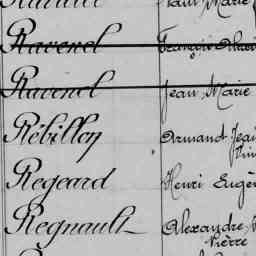 Ravenel François
Ravenel Jean Marie
Rébillon Armand Jean
Regeard Henri Eugè
Regnault Alexandre
Pierre